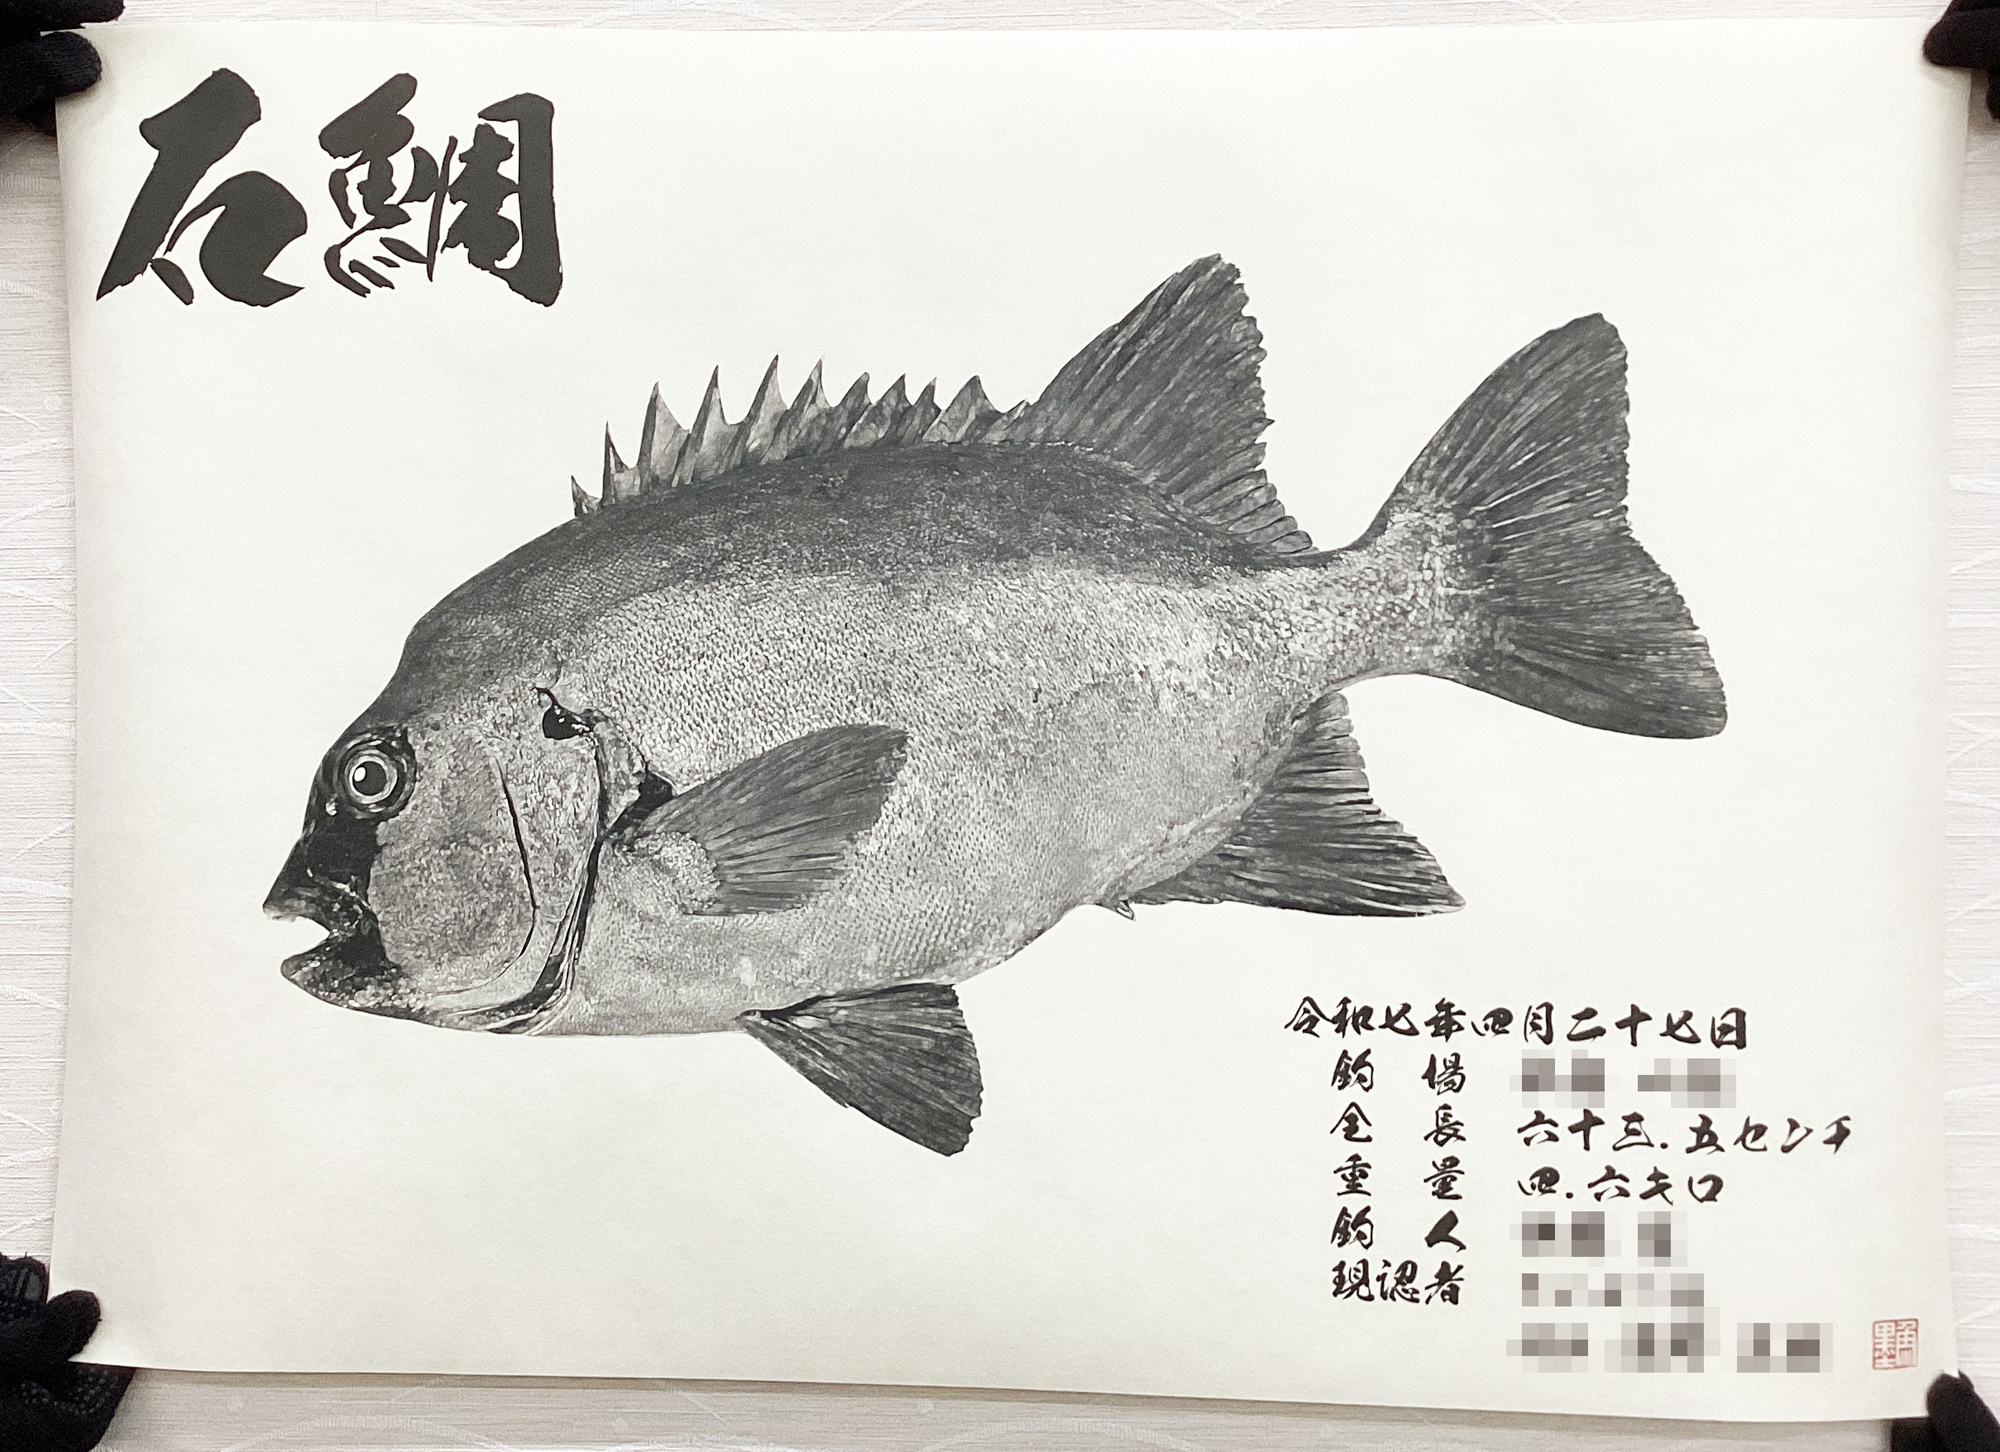 石鯛
令和七年四月二十七日
釣場
全長 六十三.五センチ
重量 四.六キロ
釣人
現認者
魚墨